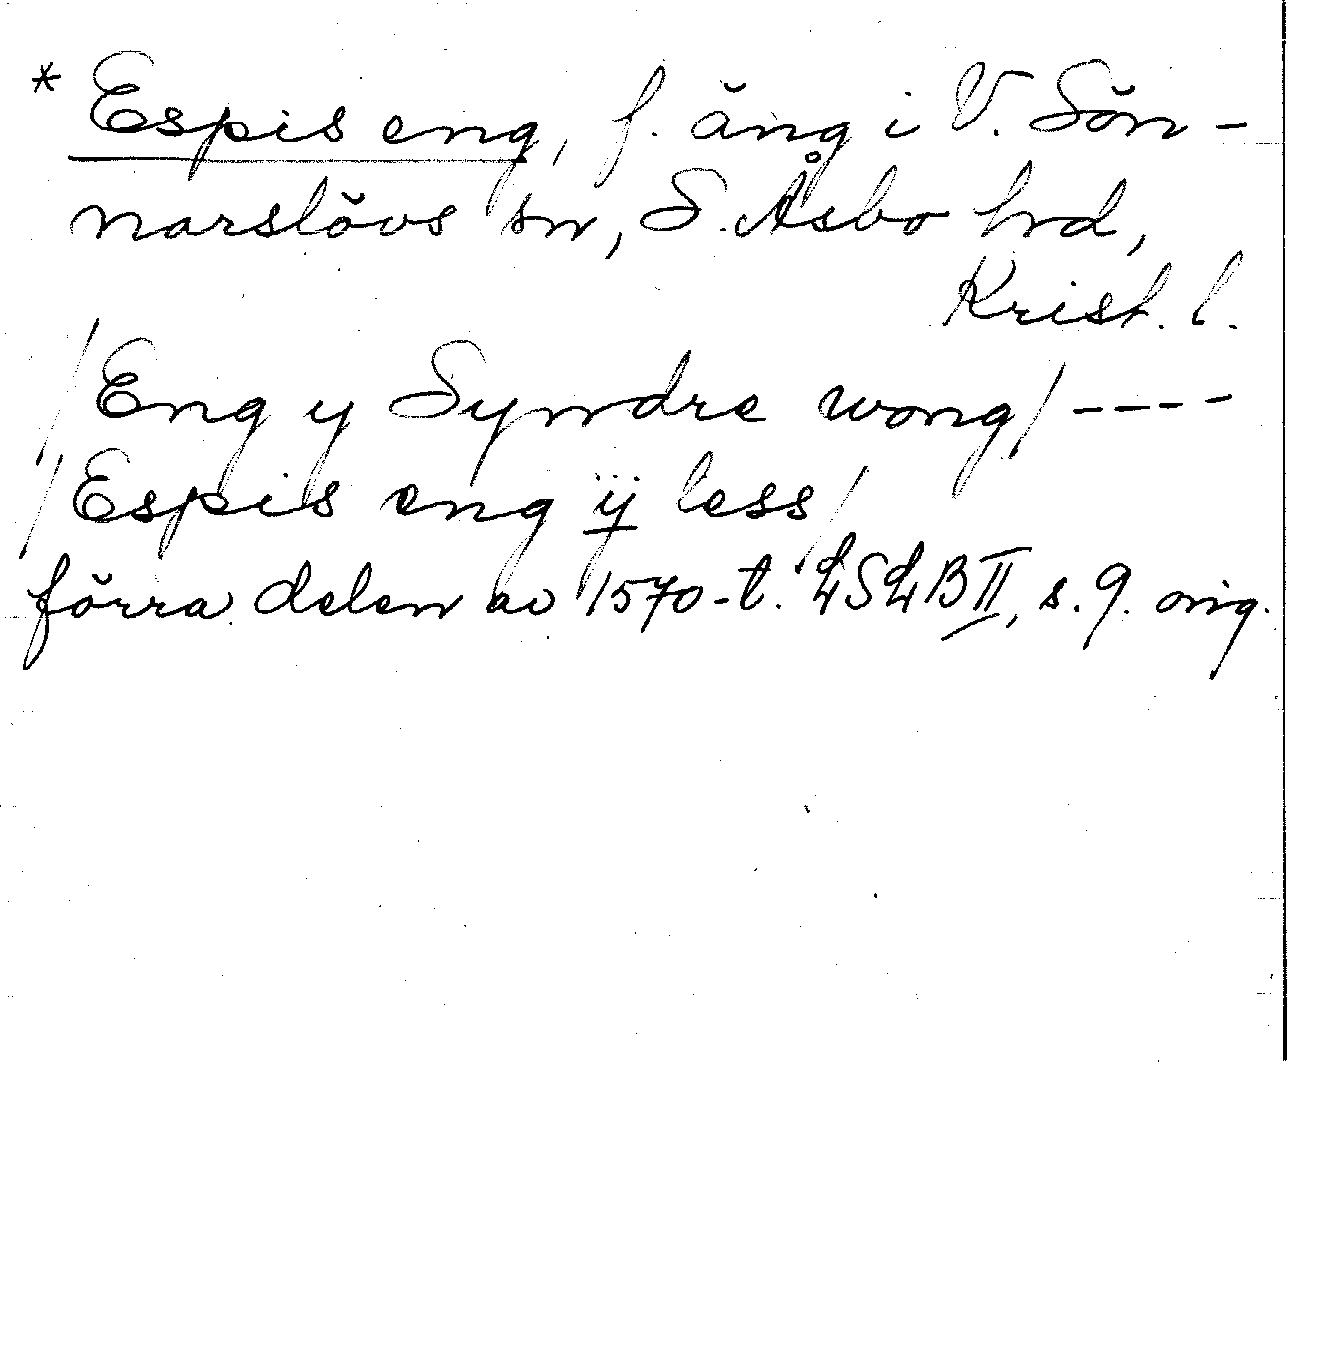 * Espis eng, f. äng i V. Sön-
narslövs sn, S. Åsbo hd,
Krist. l.
/Eng y Syndre wong/ ----
/Espis eng ij less/
förra delen av 1570-t. LSLB II, s. 9. orig.